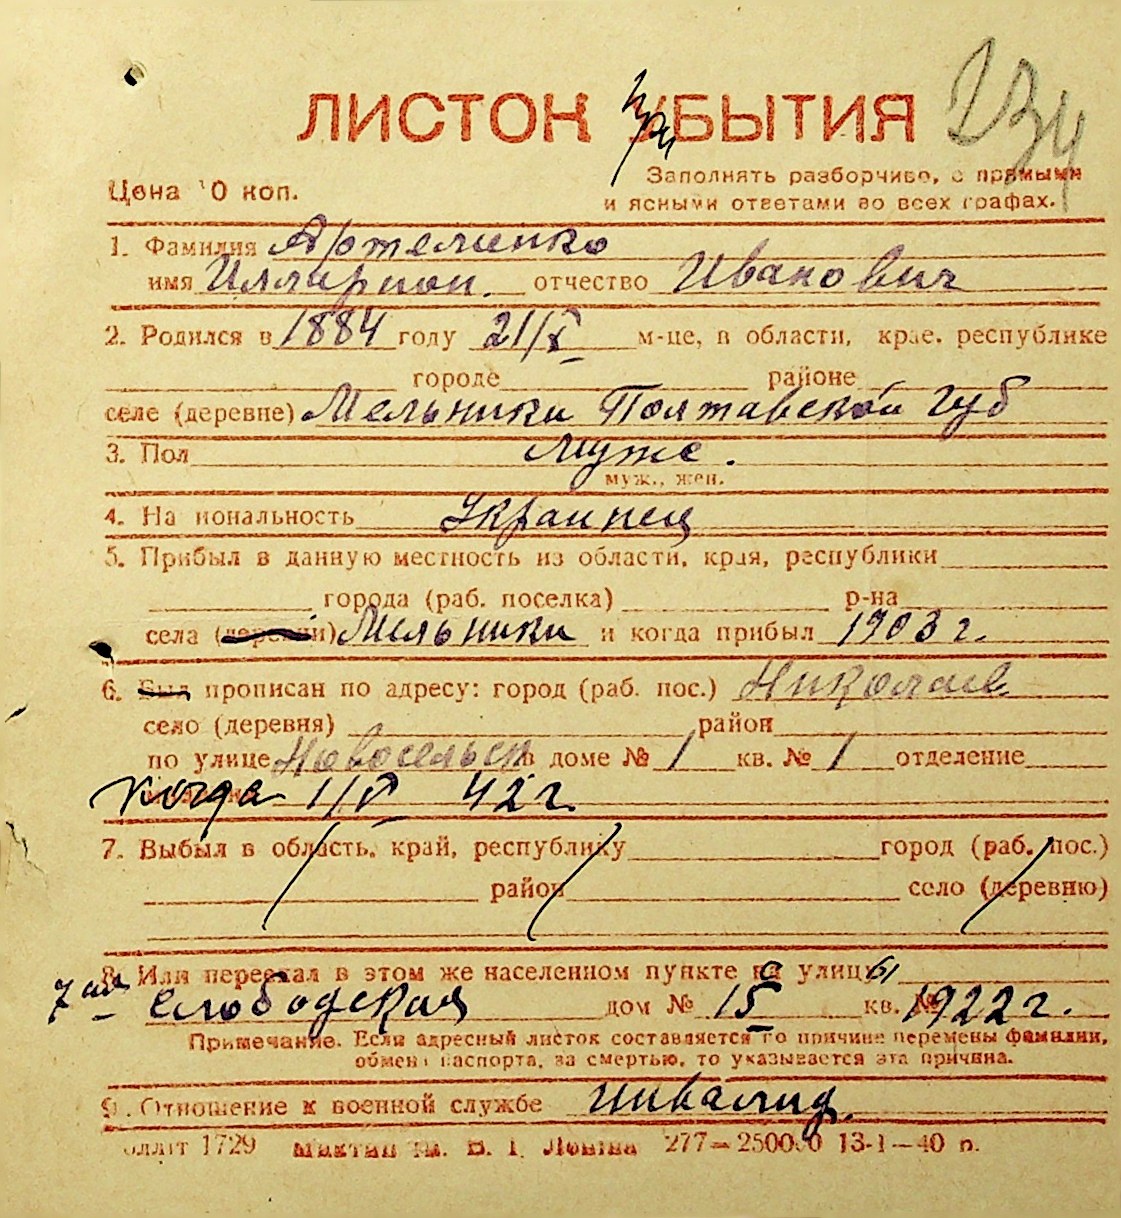 ЛИСТОК при УБЫТИЯ
Цена 10 коп.
Заполнять разборчиво, с прямыми
и ясными ответами во всех графах.
1. Фамилия Артеменко
имя Илларион. отчество Иванович
2. Родился в 1884 году 21/X м-це, в области, крае, республике
городе районе
селе (деревне) Мельники Полтавской губ
3. Пол Муже.
муж., жен.
4. Национальность Украинец
5. Прибыл в данную местность из области, края, республики
города (раб. поселка) р-на
села (деревни) Мельники и когда прибыл 1903 г.
6. Был прописан по адресу: город (раб. пос.) Николаев
село (деревня) район
по улице Новосельск в доме № 1 кв. № 1 отделение
когда 1/V 42 г.
7. Выбыл в область, край, республику город (раб. пос.)
район село (деревню)
8. Или переехал в этом же населенном пункте с улицы
7 ая Слободская дом № 15 кв. № 1922 г.
Примечание. Если адресный листок составляется по причине перемены фамилии,
обмена паспорта, за смертью, то указывается эта причина.
9. Отношение к военной службе Инвалид.
1729 В. І. Леніна 277—250000 13-I—40 р.